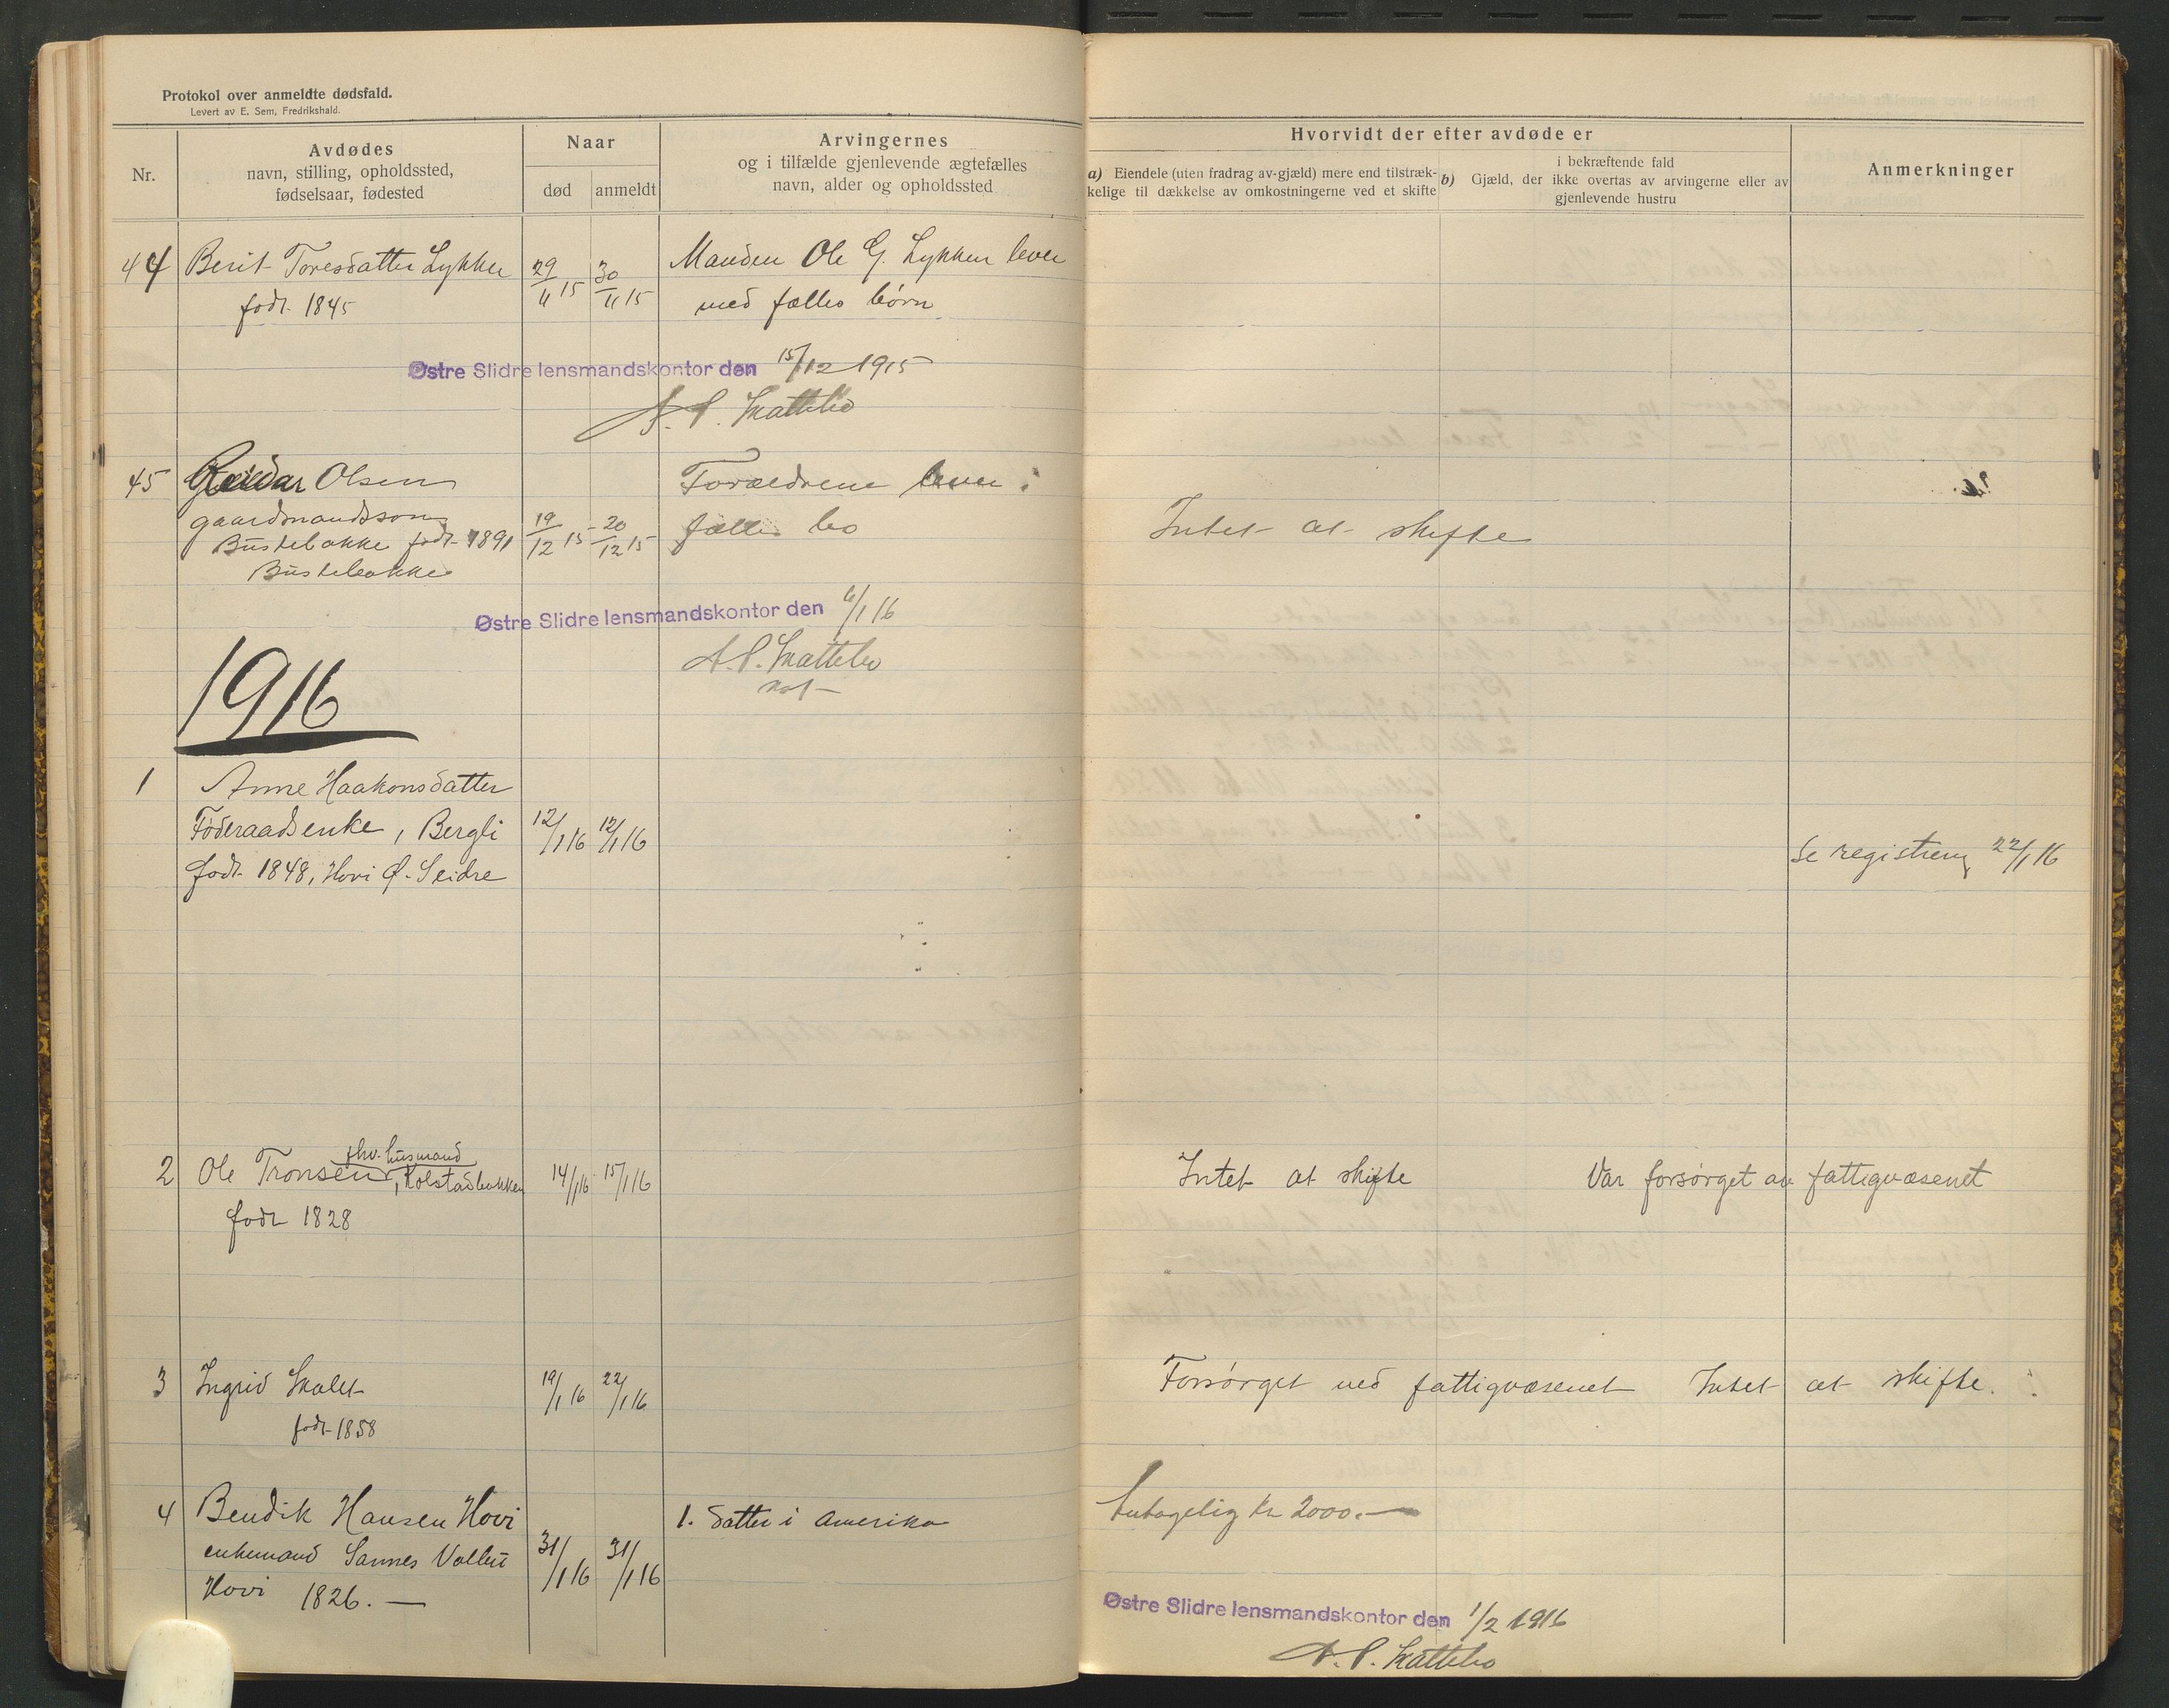 Protokol over anmeldte dødsfald.
Levert av E. Sem, Fredrikshald.
Nr.
Avdødes
navn, stilling, opholdssted,
fødselsaar, fødested
Naar
død
anmeldt
Arvingernes
og i tilfælde gjenlevende ægtefælles
navn, alder og opholdssted
Hvorvidt der efter avdøde er
a) Eiendele (uten fradrag av-gjæld) mere end tilstræk-
kelige til dækkelse av omkostningerne ved et skifte
b) Gjæld, der
i bekræftende fald
ikke overtas av arvingerne eller av
gjenlevende hustru
Anmerkninger
44 Berit Toresdatter Lykken 29/11 15 30/11 15 Manden Ole G. Lykken lever
født 1845 med fælles børn
Østre Slidre lensmandskontor den 15/12 1915
A. P. Skattebo
45 Olsen Forældrene lever i
gaardmandssøn 19/12 15 - 20/12 15 fælles bo Intet at skifte
Bustebakke født 1891
Bustebakke
Østre Slidre lensmandskontor den 6/1 16
A. P. Skattebo
1916
1 Anne Haakonsdatter
Føderaadsenke, Bergli 12/1 16 12/1 16 Se registrering 22/1 16
født 1848, Hovi Ø. Slidre
2 Ole Tronsen, fhv. husmand Kolstadbakken 14/1 16 15/1 16 Intet at skifte Var forsørget av fattigvæsenet
født 1828
3 Ingrid Skalet 19/1 16 22/1 16 Forsørget ved fattigvæsenet Intet at skifte.
født 1858
4 Bendik Hansen Hovi 31/1 16 31/1 16 1. Datter i Amerika Antagelig kr 2000.—
enkemand Sannes
Hovi 1826. —
Østre Slidre lensmandskontor den 1/2 1916
A. P. Skattebo